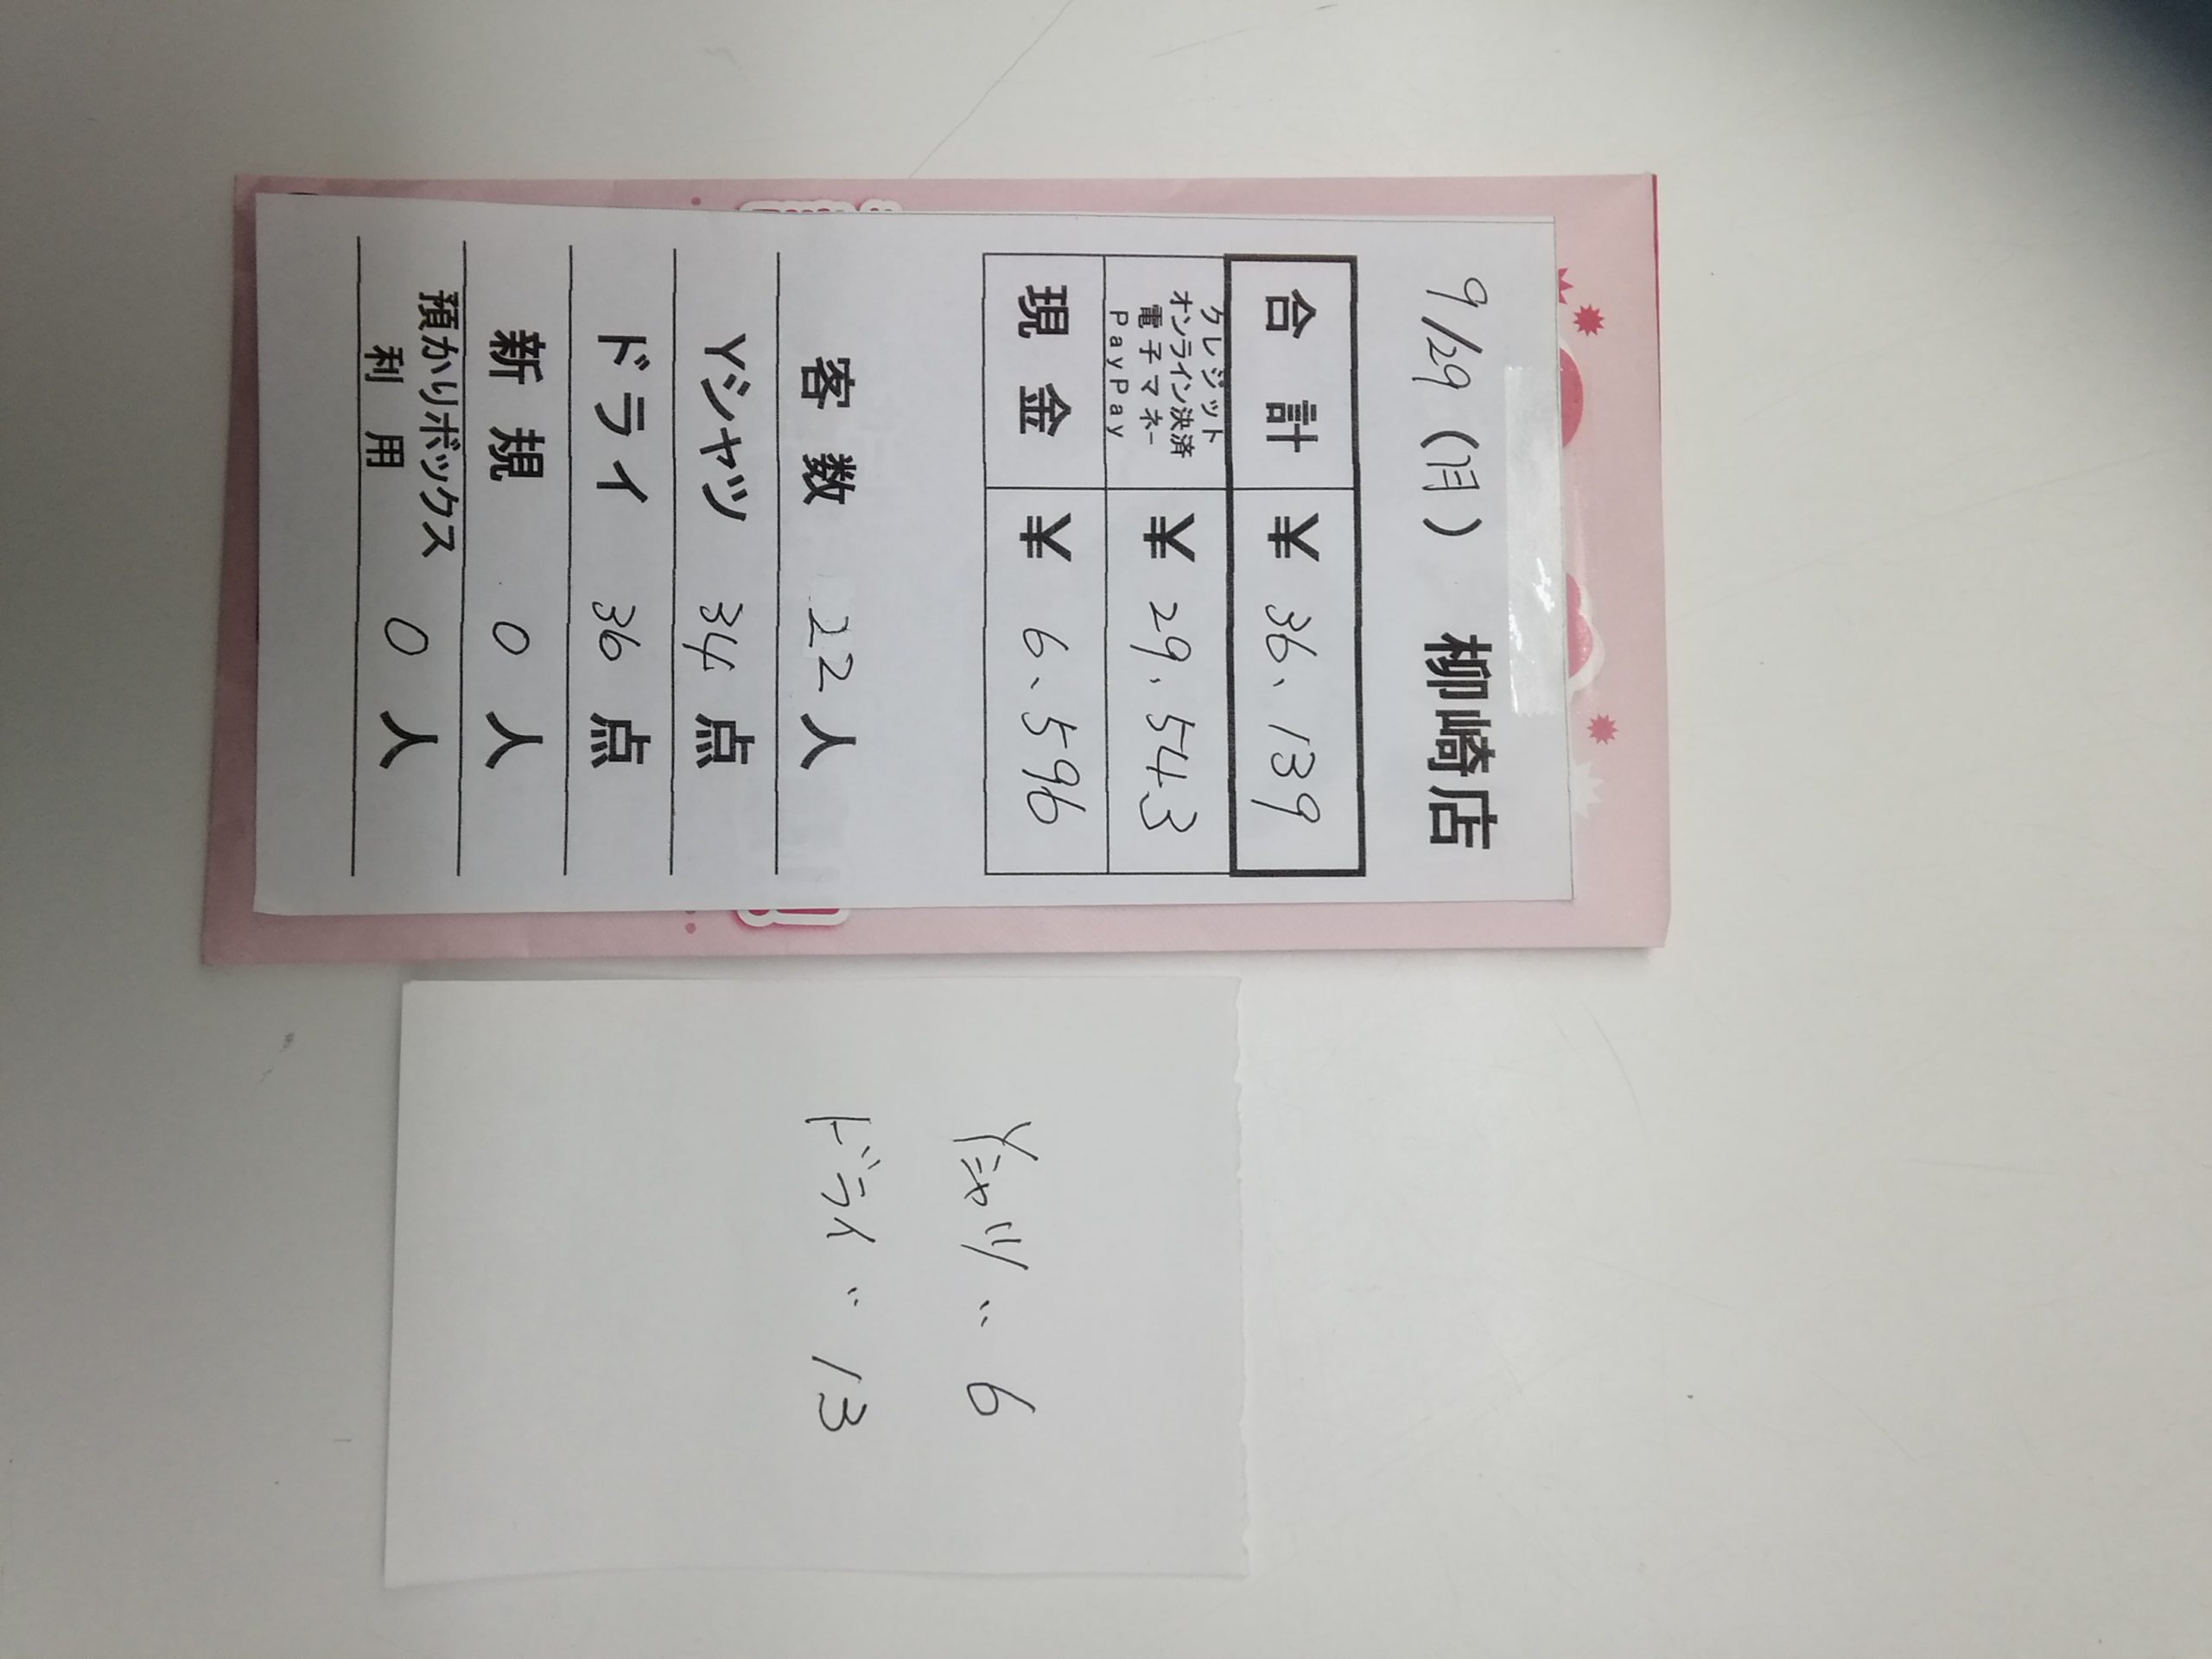 9/29（月） 柳崎店
合計 ￥ 36、139
クレジット
オンライン決済
電子マネー
PayPay
￥ 29、543
現金 ￥ 6、596
客数 22人
Yシャツ 34点
ドライ 36点
新規 0人
預かりボックス
利用
0人
Yシャツ 〃 6
ドライ 〃 13